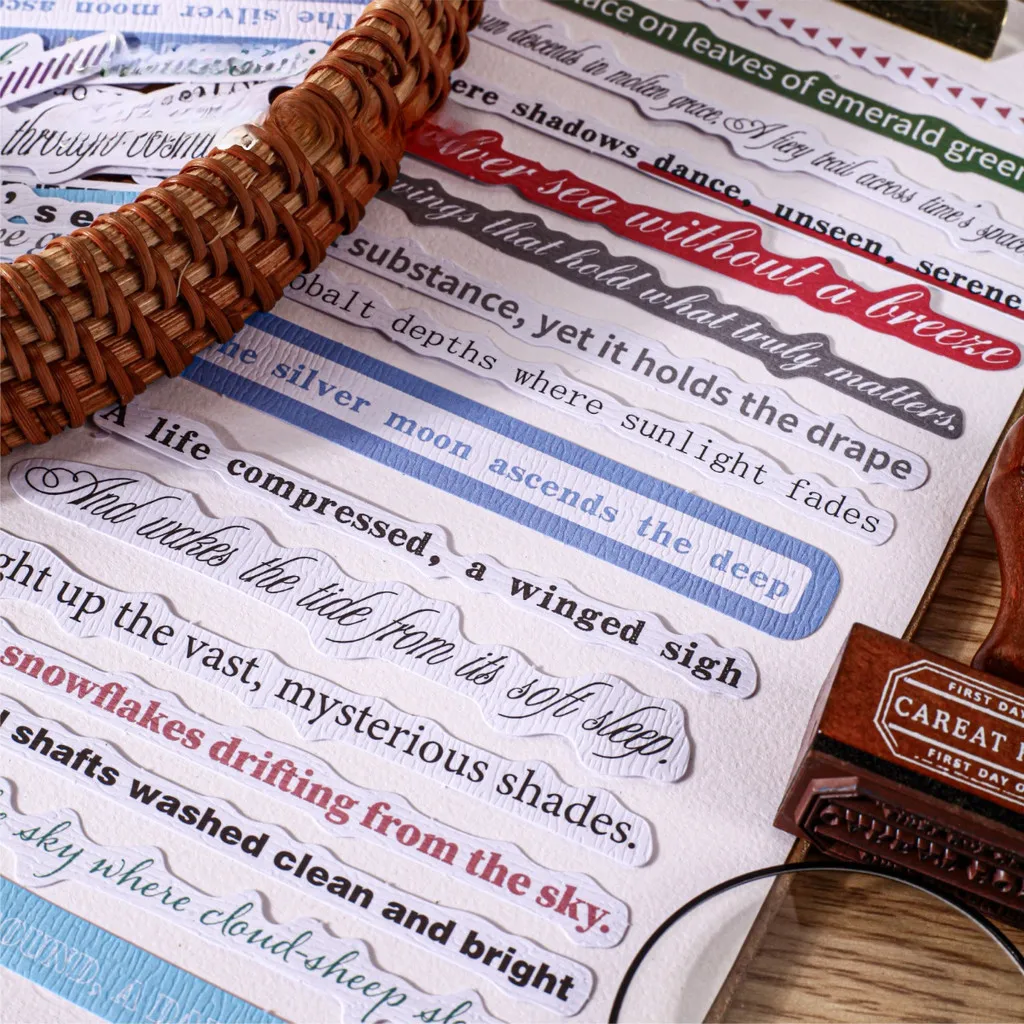 The silver moon asc
through
lace on leaves of emerald green
sun descends in molten grace, A fiery trail across time's space
ere shadows dance, unseen, serene
silver sea without a breeze
wings that hold what truly matters.
substance, yet it holds the drape
obalt depths where sunlight fades
he silver moon ascends the deep
A life compressed, a winged sigh
And wakes the tide from its soft sleep.
ght up the vast, mysterious shades.
snowflakes drifting from the sky.
shafts washed clean and bright
e sky where cloud-sheep
OUND, A
FIRST DAY
CAREAT
FIRST DAY O